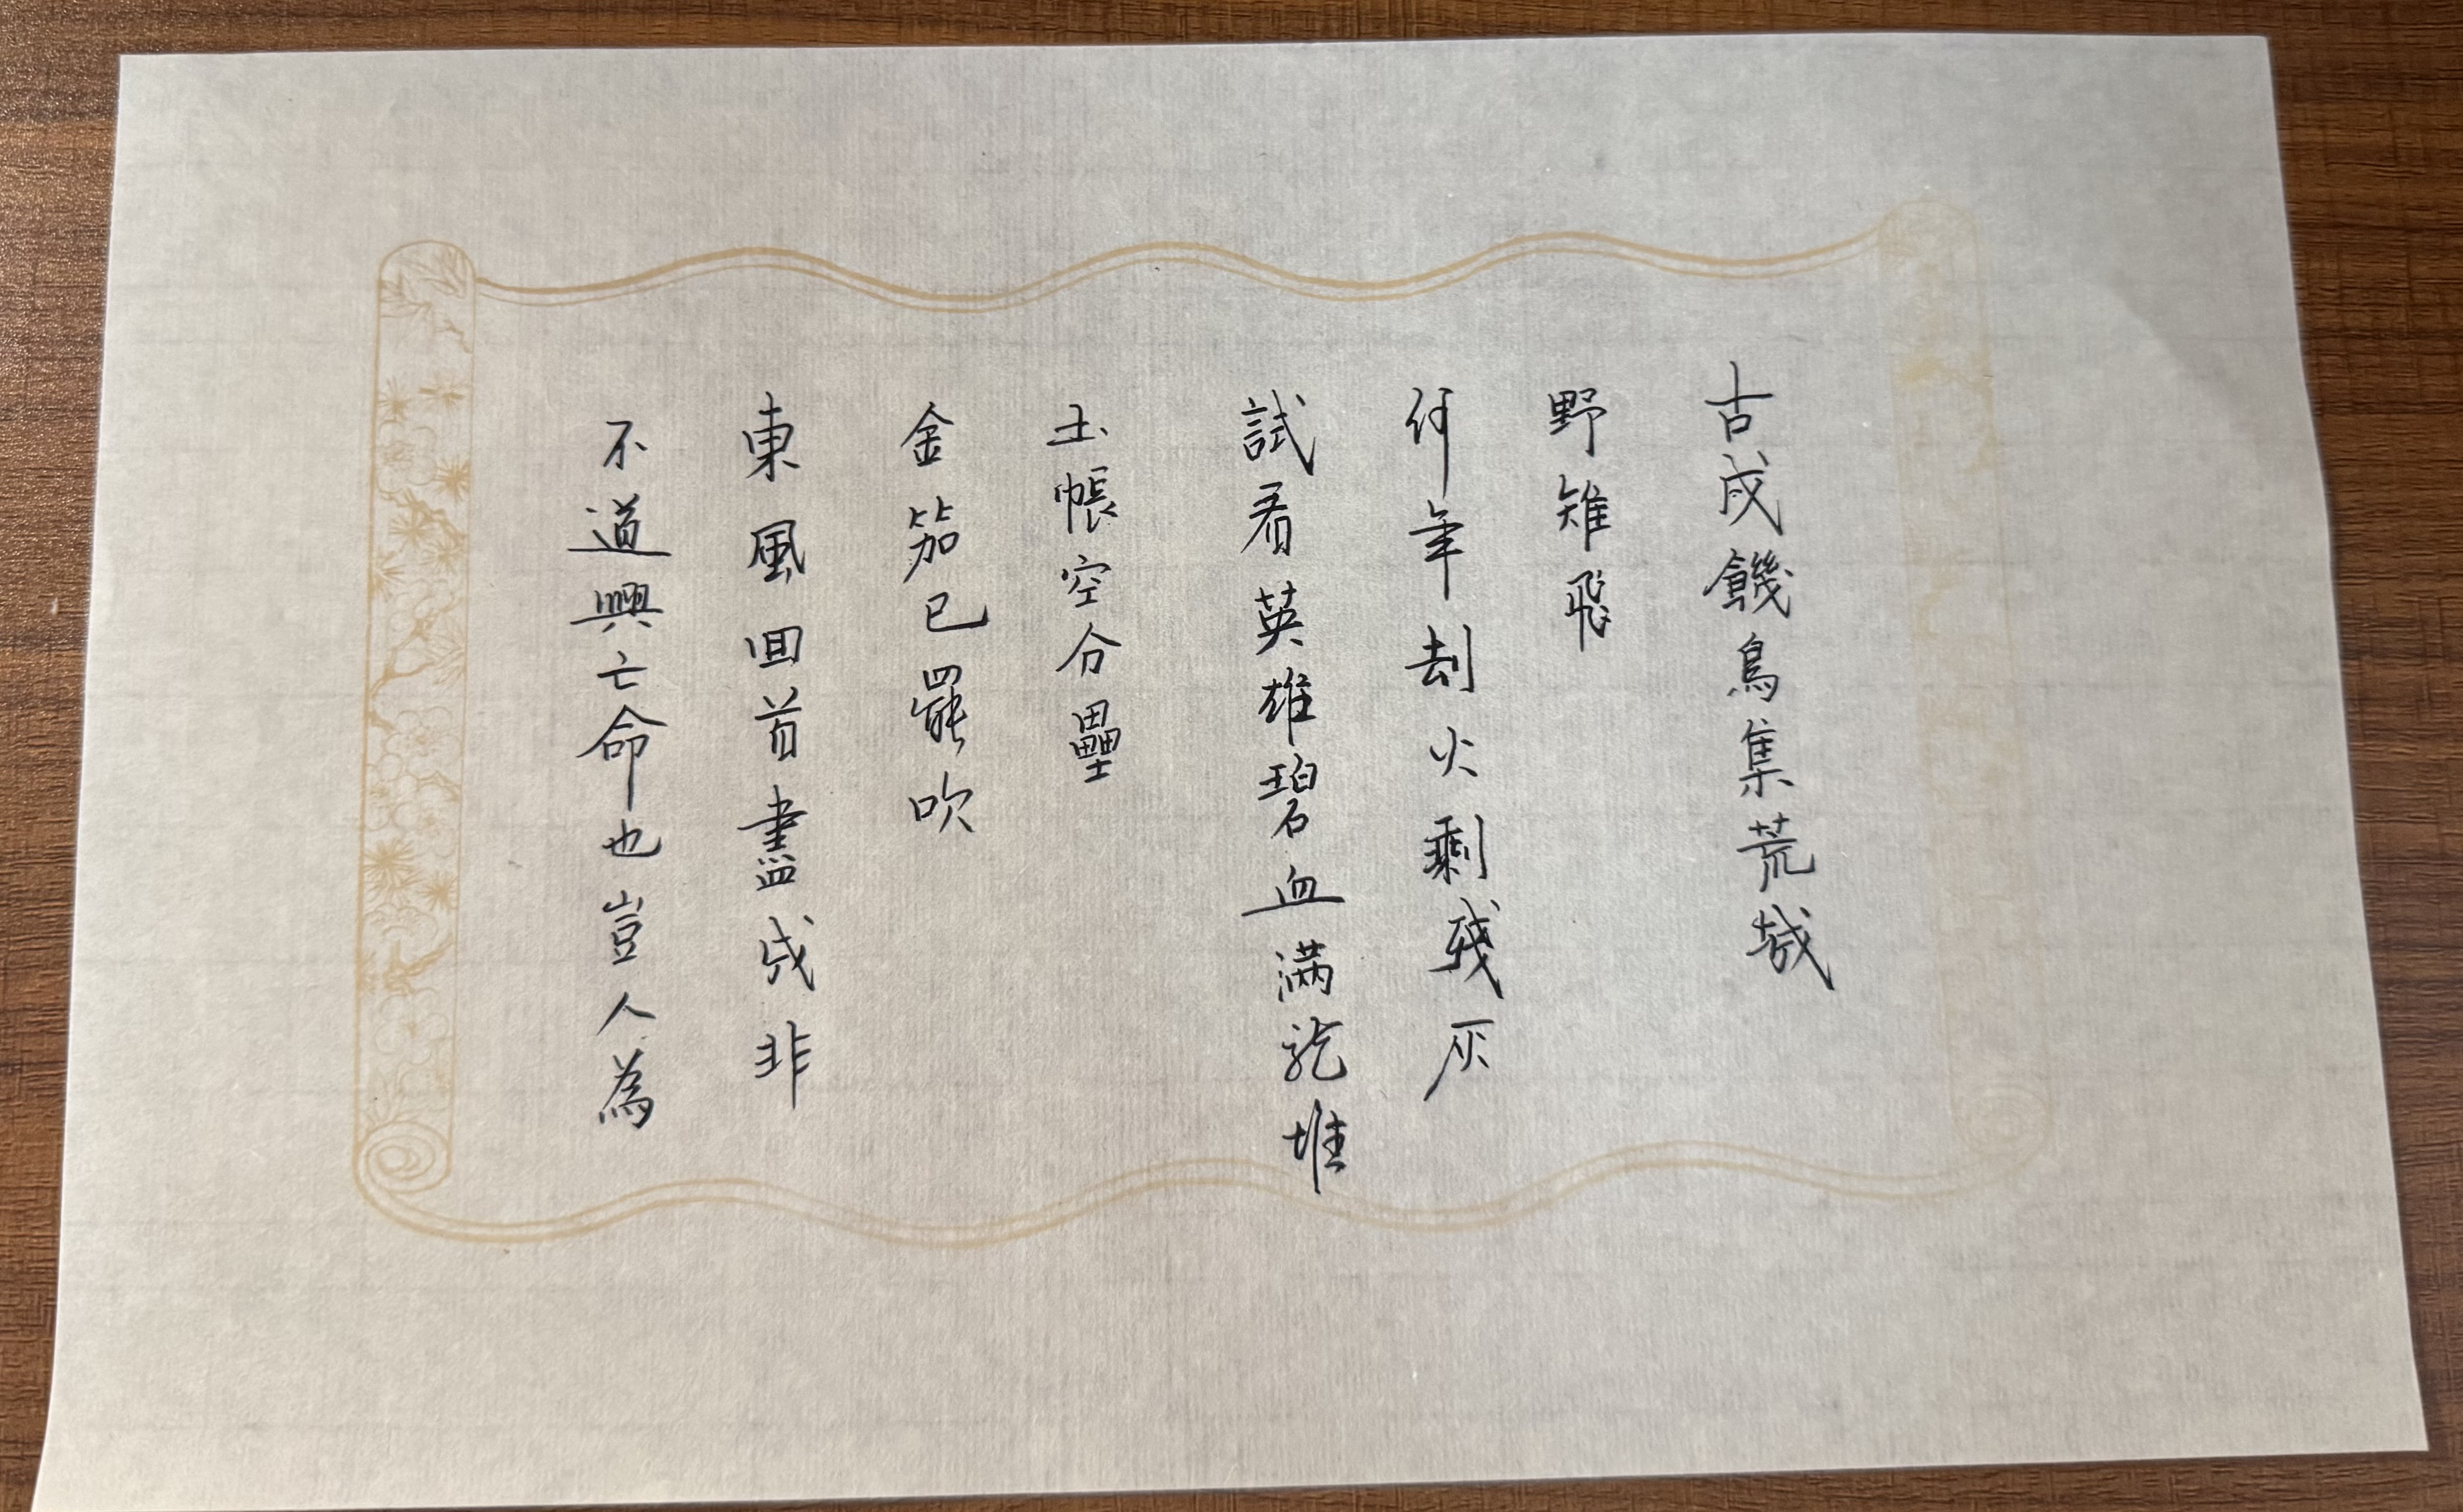 古戍饑烏集荒城
野雉飛
何年劫火剩残灰
試看英雄碧血满龍堆
玉帳空分壘
金笳已罷吹
東風回首盡成非
不道興亡命也豈人為